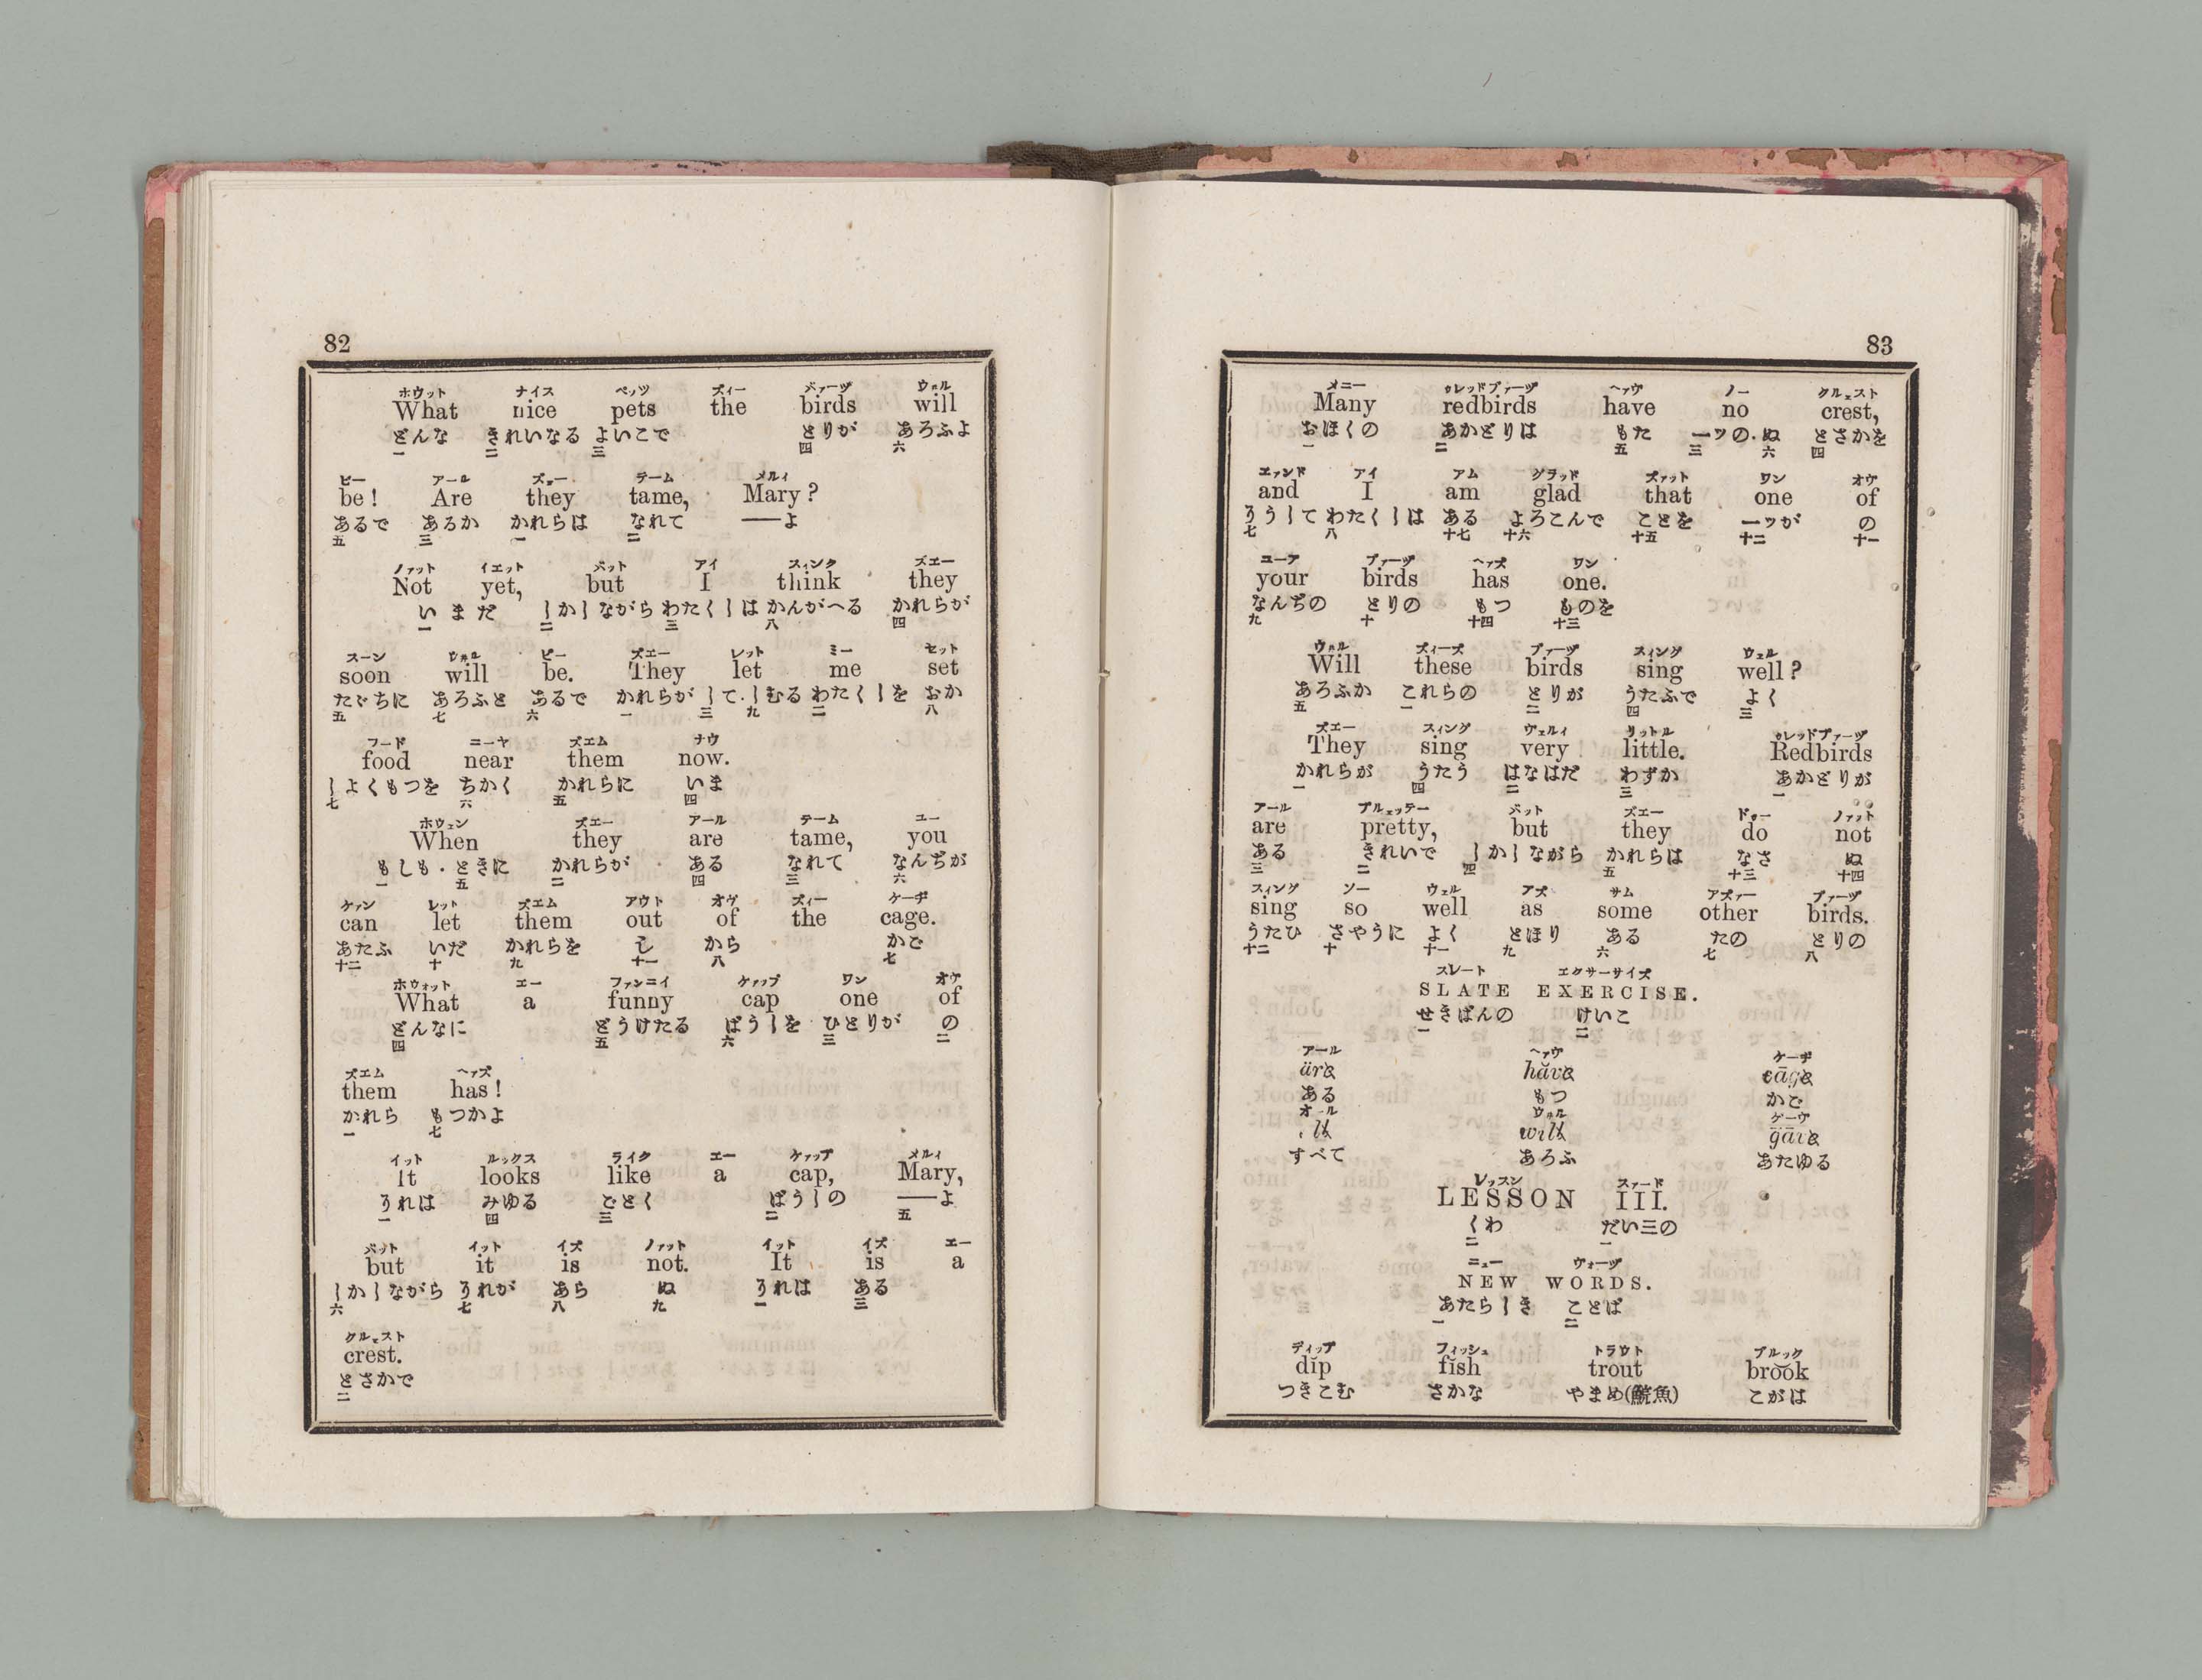 82
ホウット ナイス ペッツ ズィー バァーヅ ウㇽル
What nice pets the birds will
どんな きれいなる よいこで とりが あろふよ
一 二 三 四 六
ビー アール ズェー テーム メルィ
be! Are they tame, Mary?
あるで あるか かれらは なれて ——よ
五 三 一 二
ノァット イエット バット アイ スィンク ズエー
Not yet, but I think they
いまだ しかしながら わたくしは かんがへる かれらが
一 二 三 八 四
スーン ウㇽル ビー ズエー レット ミー セット
soon will be. They let me set
たゞちに あろふと あるで かれらが して・しむる わたくしを おか
五 七 六 一 三 九 二 八
フード ニーヤ ズエム ナウ
food near them now.
しよくもつを ちかく かれらに いま
七 六 五 四
ホウェン ズエー アール テーム ユー
When they are tame, you
もしも・ときに かれらが ある なれて なんぢが
一 五 二 四 三 六
ケァン レット ズエム アウト オヴ ズィー ケーヂ
can let them out of the cage.
あたふ いだ かれらを し から かご
十二 十 九 十一 八 七
ホウォット エー ファンニイ ケァップ ワン オヴ
What a funny cap one of
どんなに どうけたる ばうしを ひとりが の
四 五 六 三 二
ズエム ヘァズ
them has!
かれら もつかよ
一 七
イット ルックス ライク エー ケァップ メルィ
It looks like a cap, Mary,
それは みゆる ごとく ばうしの ——よ
一 四 三 二 五
バット イット イズ ノァット イット イズ エー
but it is not. It is a
しかしながら それが あら ぬ それは ある
六 七 八 九 一 三
クルェスト
crest.
とさかで
二
83
メニー ゥレッドブァーヅ ヘァヴ ノー クルェスト
Many redbirds have no crest,
おほくの あかどりは もた 一ッの・ぬ とさかを
一 二 五 三 六 四
エァンド アイ アム グラッド ズァット ワン オヴ
and I am glad that one of
そうして わたくしは ある よろこんで ことを 一ッが の
七 八 十七 十六 十五 十二 十一
ユーア ブァーヅ ヘァズ ワン
your birds has one.
なんぢの とりの もつ ものを
九 十 十四 十三
ウㇽル ズィーズ ブァーヅ スィング ウェル
Will these birds sing well?
あろふか これらの とりが うたふで よく
五 一 二 四 三
ズエー スィング ヴェルィ リットル ゥレッドブァーヅ
They sing very little. Redbirds
かれらが うたう はなはだ わずか あかどりが
一 四 二 三 一
アール プルェッテー バット ズエー ドゥー ノァット
are pretty, but they do not
ある きれいで しかしながら かれらは なさ ぬ
三 二 四 五 十三 十四
スィング ソー ウェル アズ サム アズァー ブァーヅ
sing so well as some other birds.
うたひ さやうに よく とほり ある たの とりの
十二 十 十一 九 六 七 八
スレート エクサーサイズ
SLATE EXERCISE.
せきばんの けいこ
一 二
アール ヘァヴ ケーヂ
äre hăve cāge
ある もつ かご
オール ウㇽル ゲーヴ
ll will gāve
すべて あろふ あたゆる
レッスン スァード
LESSON III.
くわ だい三の
二 一
ニュー ウォーヅ
NEW WORDS.
あたらしき ことば
一 二
ディップ フィッシュ トラウト ブルック
dĭp fĭsh trout bro͝ok
つきこむ さかな やまめ(鯇魚) こがは